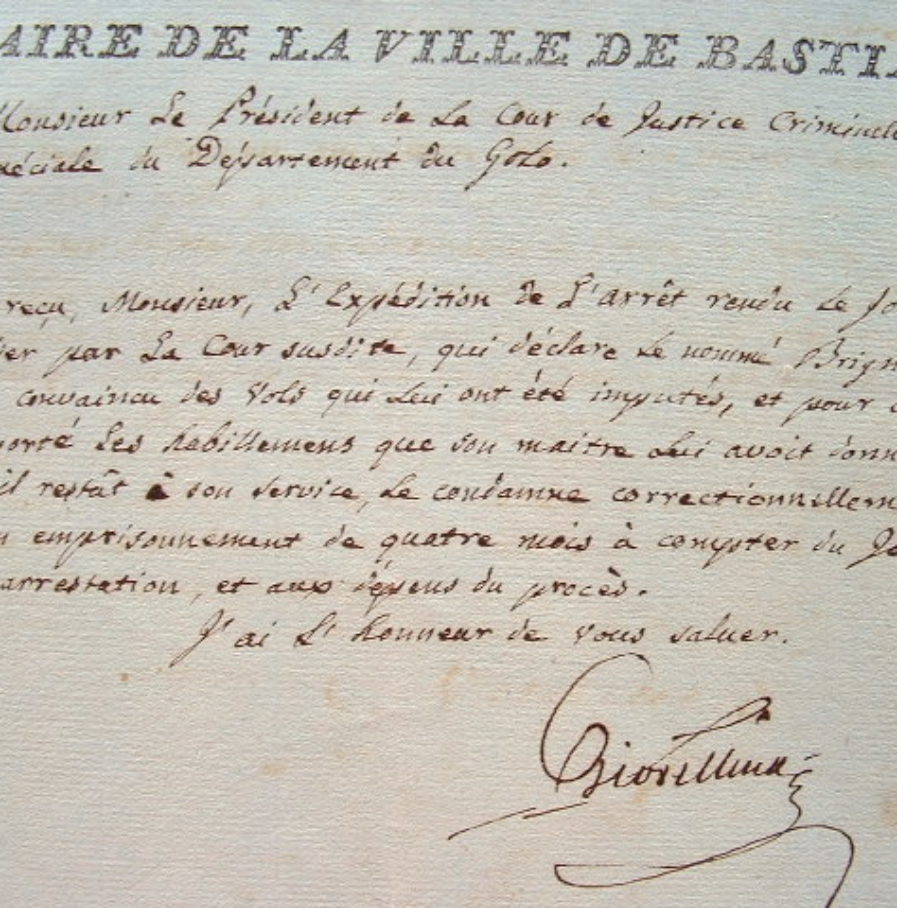 AIRE DE LA VILLE DE BASTIA
Monsieur Le Président de La Cour de Justice Criminelle
péciale du Département du Golo.
reçu, Monsieur, L'Expédition de L'arrêt rendu Le Jo
ier par La Cour susdite, qui déclare Le nommé Brign
convaincu des Vols qui Lui ont été imputés, et pour
porté Les habillemens que son maitre Lui avoit donn
il restât à son Service, Le condamne correctionnellem
emprisonnement de quatre mois à compter du Jo
arrestation, et aux dépens du procès.
J'ai L'honneur de vous saluer.